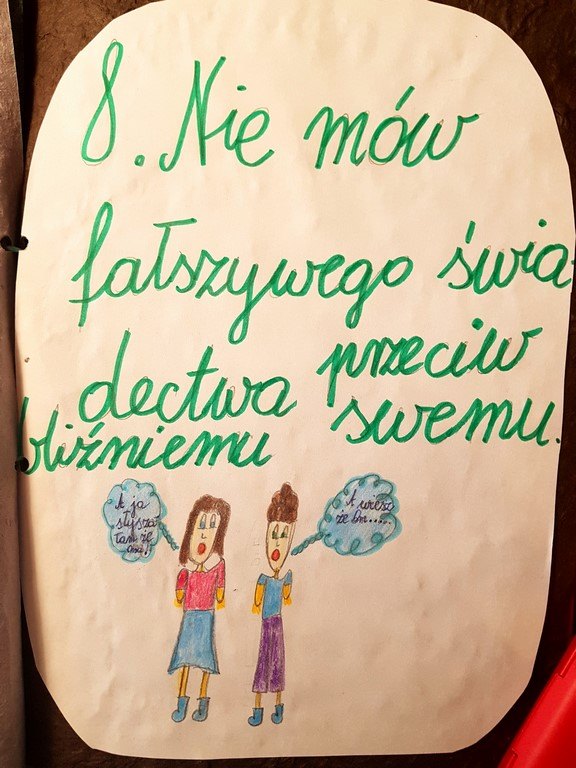 8. Nie mów
fałszywego świa
dectwa przeciw
bliźniemu swemu.
A ja
słysza
łam że
A wiesz
że